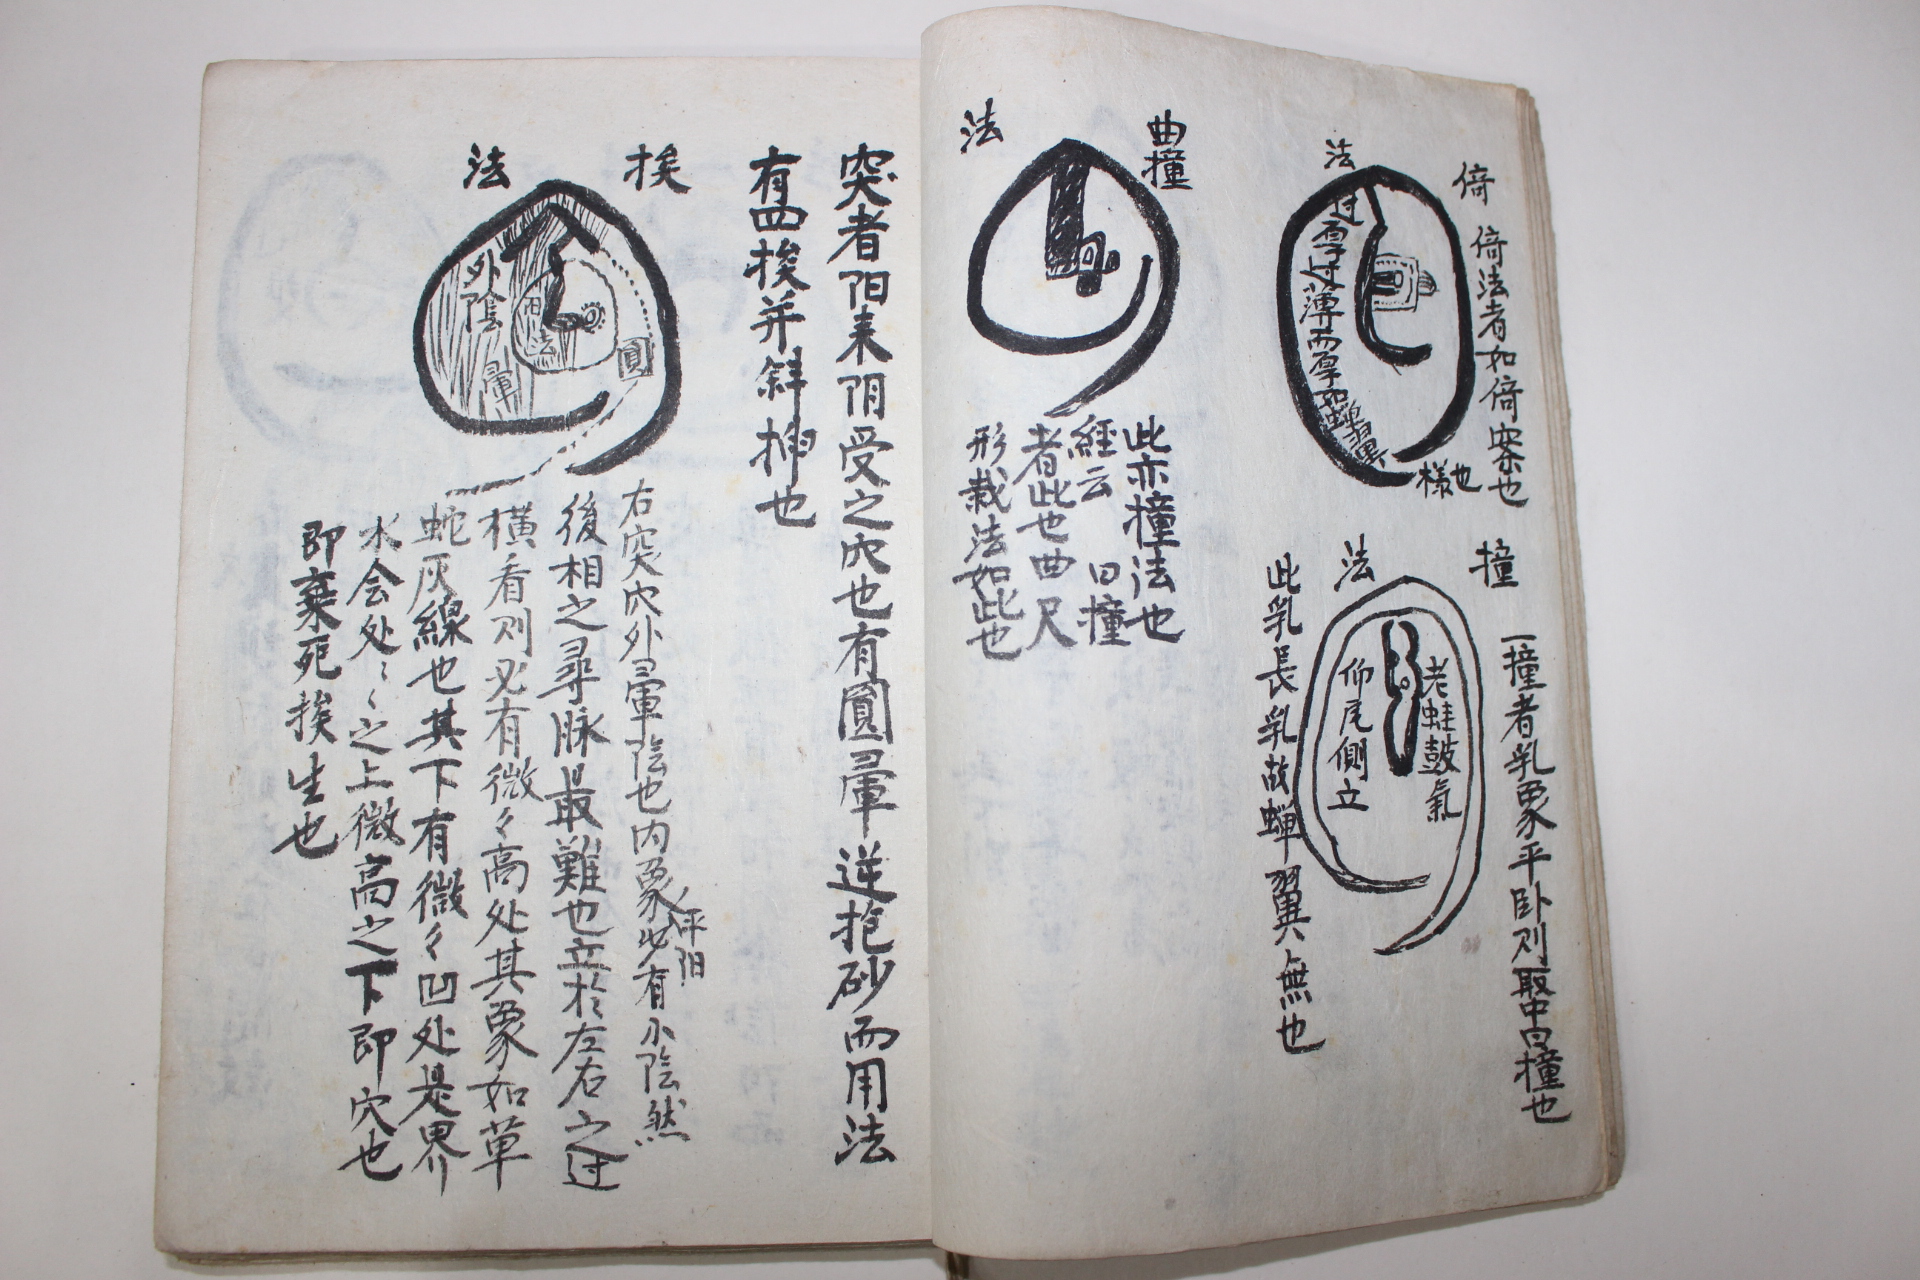 倚
法
倚法者如倚案也
過厚过薄而厚如蟬翼
樣也
撞
法
一撞者乳象平卧則取中曰撞也
老蛙鼓氣
仰尾側立
此乳長乳故蟬翼無也
曲撞
法
此亦撞法也
經云曰撞
者此也曲尺
形裁法如此也
突者阳来阴受之穴也有圓暈逆抱砂而用法
有四挨并斜挿也
挨
法
外陰
暈
阳法
圓
右突穴外暈陰也内象必有小陰然
平阳
後相之尋脉最難也立於左右之过
橫看則必有微々高处其象如草
蛇灰線也其下有微々凹处是界
水会处々之上微高之下即穴也
即棄死挨生也